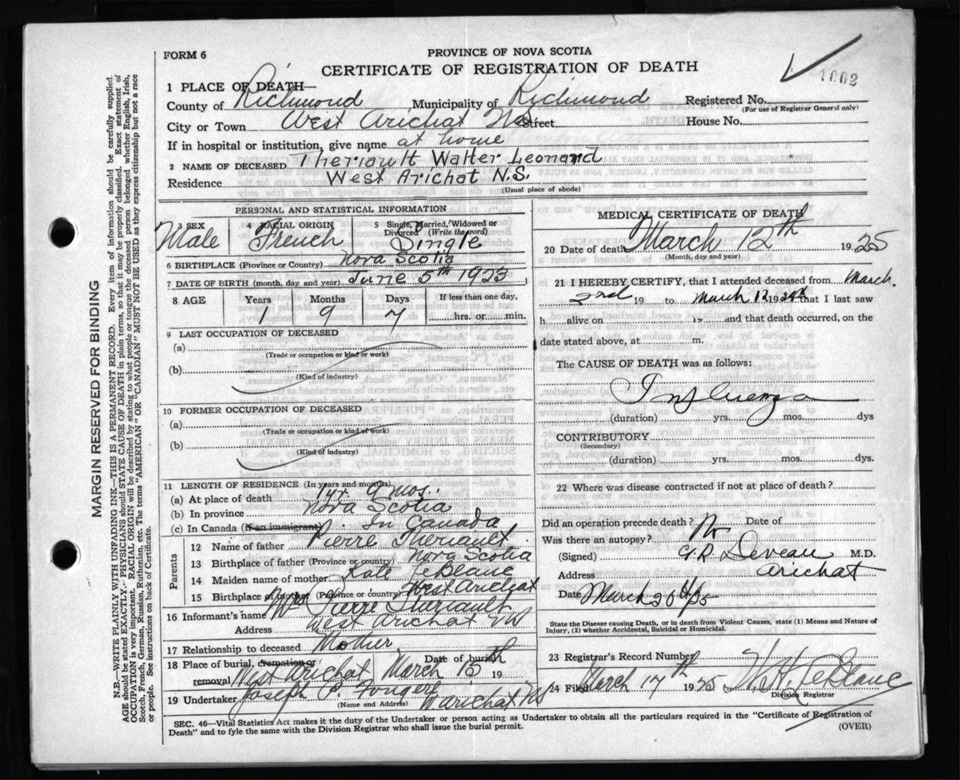 FORM 6
PROVINCE OF NOVA SCOTIA
CERTIFICATE OF REGISTRATION OF DEATH
1002
1 PLACE OF DEATH—
County of Richmond Municipality of Richmond Registered No.
(For use of Registrar General only)
City or Town West Arichat NS Street House No.
If in hospital or institution, give name at home
2 NAME OF DECEASED Theriault Walter Leonard
Residence West Arichat N.S.
(Usual place of abode)
PERSONAL AND STATISTICAL INFORMATION
3 SEX 4 RACIAL ORIGIN 5 Single, Married, Widowed or Divorced (Write the word)
Male French Single
6 BIRTHPLACE (Province or Country) Nova Scotia
7 DATE OF BIRTH (month, day and year) June 5th 1923
8 AGE Years Months Days If less than one day,
1 9 7 hrs. or min.
9 LAST OCCUPATION OF DECEASED
(a)
(Trade or occupation or kind of work)
(b)
(Kind of industry)
10 FORMER OCCUPATION OF DECEASED
(a)
(Trade or occupation or kind of work)
(b)
(Kind of industry)
11 LENGTH OF RESIDENCE (In years and months)
(a) At place of death 1 yr. 9 mos.
(b) In province Nova Scotia
(c) In Canada (if an immigrant) In Canada
Parents
12 Name of father Pierre Theriault
13 Birthplace of father (Province or country) Nova Scotia
14 Maiden name of mother Kate LeBlanc
15 Birthplace (Province or country) West Arichat
16 Informant's name Mrs Pierre Theriault
Address West Arichat NS
17 Relationship to deceased Mother
18 Place of burial, cremation or removal West Arichat Date of burial March 13th 19
19 Undertaker Joseph P. Fougere W Arichat NS
(Name and Address)
MEDICAL CERTIFICATE OF DEATH
20 Date of death March 12th 1925
(Month, day and year)
21 I HEREBY CERTIFY, that I attended deceased from March
2nd 19 to March 12 192 that I last saw
h alive on 19 and that death occurred, on
date stated above, at m.
The CAUSE OF DEATH was as follows:
Influenza
(duration) yrs. mos. dys
CONTRIBUTORY
(Secondary)
(duration) yrs. mos. dys
22 Where was disease contracted if not at place of death?
Did an operation precede death? No Date of
Was there an autopsy?
(Signed) G. R. Deveau M.D.
Address Arichat
Date March
State the Disease causing Death, or in death from Violent Causes, state (1) Means and Nature of
Injury, (2) whether Accidental, Suicidal or Homicidal.
23 Registrar's Record Number
24 Filed March 17th 1925 LeBlanc
Division Registrar
SEC. 46—Vital Statistics Act makes it the duty of the Undertaker or person acting as Undertaker to obtain all the particulars required in the "Certificate of Registration of
Death" and to fyle the same with the Division Registrar who shall issue the burial permit. (OVER)
MARGIN RESERVED FOR BINDING
N.B.—WRITE PLAINLY WITH UNFADING INK—THIS IS A PERMANENT RECORD. Every item of information should be carefully supplied.
AGE should be stated EXACTLY. PHYSICIANS should STATE CAUSE OF DEATH in plain terms, so that it may be properly classified. Exact statement of
OCCUPATION is very important. RACIAL ORIGIN will be described by stating to what people or tongue the deceased person belonged whether English, Irish,
Scotch, French, German, Russian, Ruthenian, etc. The terms "AMERICAN" OR "CANADIAN" MUST NOT BE USED as they express citizenship but not a race
or people. See instructions on back of Certificate.